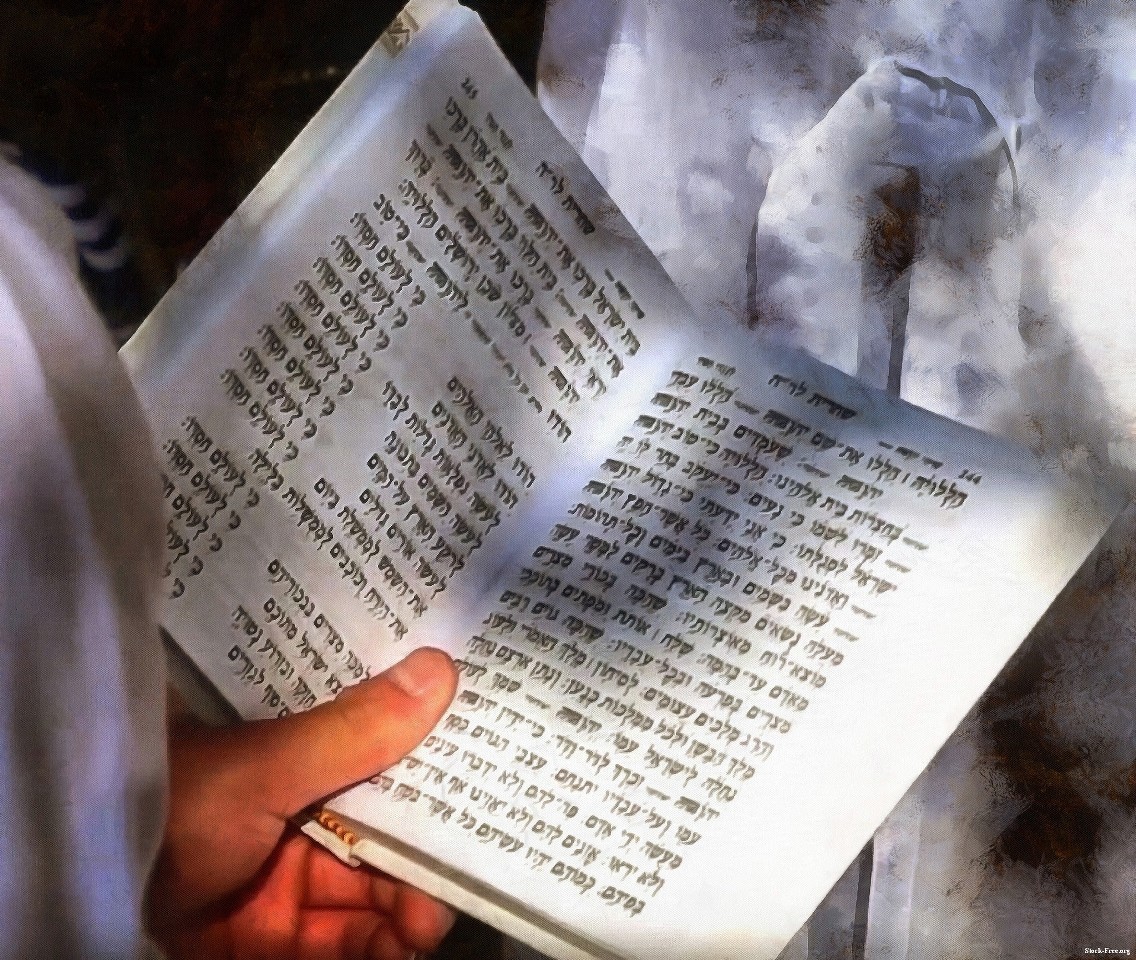 144 שחרית לר״ה
הללויה | הללו את־שם יהוה — הללו עבדי
יהוה — שעמדים בבית יהוה
— בחצרות בית אלהינו: הללויה כי־טוב יהוה
— זמרו לשמו כי נעים: כי־יעקב בחר לו יה
ישראל לסגלתו: כי אני ידעתי כי־גדול יהוה
— ואדנינו מכל־אלהים: כל אשר־חפץ יהוה
— עשה בשמים ובארץ בימים וכל־תהמות:
מעלה נשאים מקצה הארץ ברקים למטר עשה
מוצא־רוח מאוצרותיו: שהכה בכורי מצרים
מאדם עד־בהמה: שלח | אותת ומפתים בתוככי
מצרים בפרעה ובכל־עבדיו: שהכה גוים רבים
והרג מלכים עצומים: לסיחון | מלך האמרי ולעוג
מלך הבשן ולכל ממלכות כנען: ונתן ארצם נחלה
נחלה לישראל עמו: יהוה — שמך
יהוה — זכרך לדר־ודר: כי־ידין יהוה
עמו ועל־עבדיו יתנחם: עצבי הגוים כסף
מעשה ידי אדם: פה־להם ולא ידברו עינים
ולא יראו: אזנים להם ולא יאזינו אף אין
בפיהם: כמוהם יהיו עשיהם כל אשר בטח בהם
שחרית לר״ה 145
בית ישראל ברכו את יהוה — בית אהרן ברכו
את יהוה — בית הלוי ברכו את יהוה — יראי
יהוה — ברכו את־יהוה — ברוך
יהוה — מציון שכן ירושלים הללויה:
הודו ליהוה — כי־טוב
כי לעולם חסדו:
הודו לאלהי האלהים כי לעולם חסדו:
הודו לאדני האדנים כי לעולם חסדו:
לעשה נפלאות גדלות לבדו כי לעולם חסדו:
לעשה השמים בתבונה כי לעולם חסדו:
לרקע הארץ על־המים כי לעולם חסדו:
לעשה אורים גדלים כי לעולם חסדו:
את־השמש לממשלת ביום כי לעולם חסדו:
את־הירח וכוכבים לממשלות בלילה
כי לעולם חסדו:
למכה מצרים בבכוריהם כי לעולם חסדו:
ויוצא ישראל מתוכם כי לעולם
חזקה ובזרוע נטויה כי
סוף לגזרים כי
Stock-Free.org